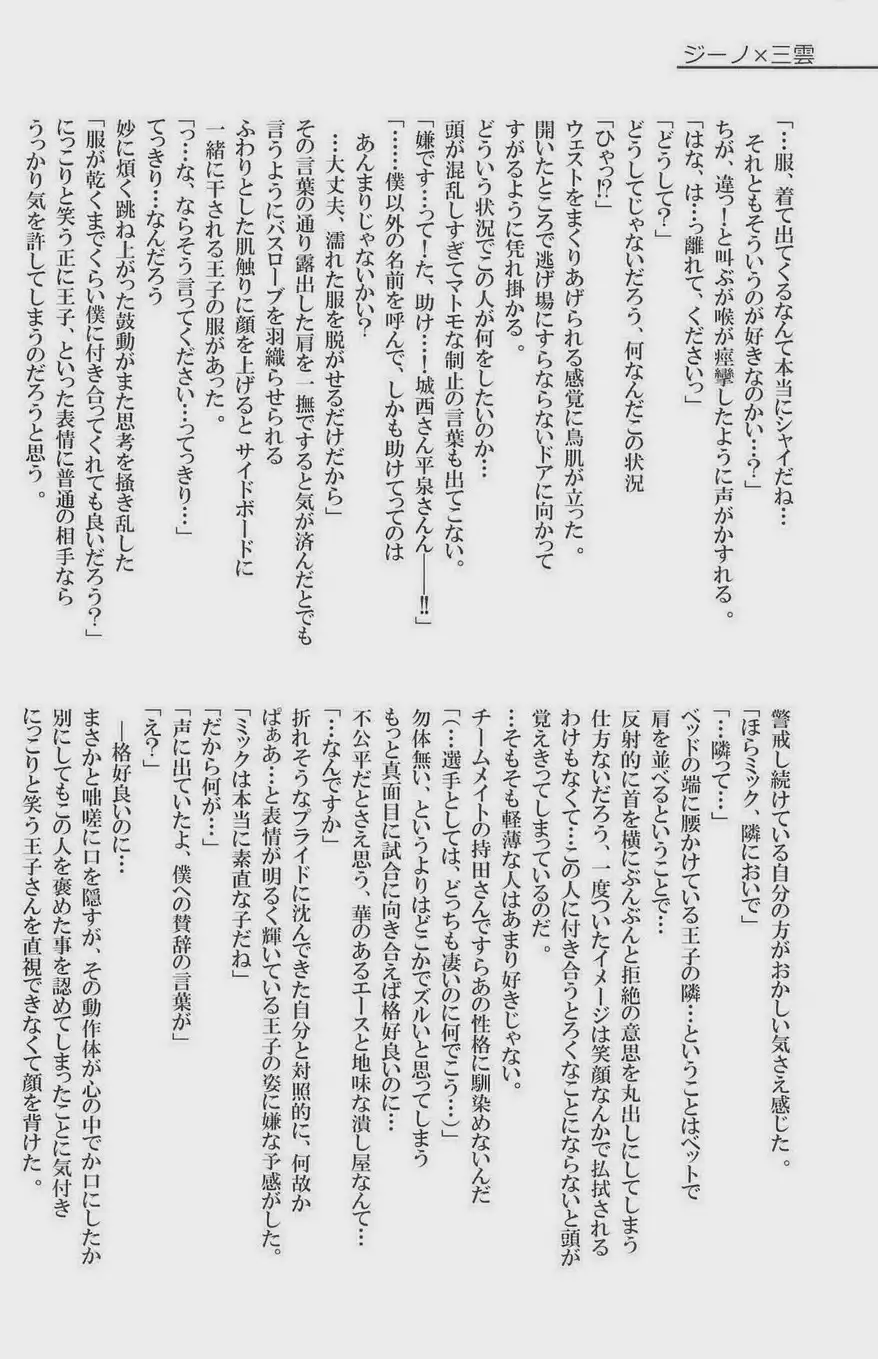 ジーノ×三雲
「…服、着て出てくるなんて本当にシャイだね…
それともそういうのが好きなのかい…？」
ちが、違っ！と叫ぶが喉が痙攣したように声がかすれる。
「はな、は…っ離れて、くださいっ」
「どうして？」
どうしてじゃないだろう、何なんだこの状況
「ひゃっ!?」
ウェストをまくりあげられる感覚に鳥肌が立った。
開いたところで逃げ場にすらならないドアに向かって
すがるように凭れ掛かる。
どういう状況でこの人が何をしたいのか…
頭が混乱しすぎてマトモな制止の言葉も出てこない。
「嫌です…って！た、助け…！城西さん平泉さんん――!!」
「……僕以外の名前を呼んで、しかも助けてってのは
あんまりじゃないかい？
…大丈夫、濡れた服を脱がせるだけだから」
その言葉の通り露出した肩を一撫ですると気が済んだとでも
言うようにバスローブを羽織らせられる
ふわりとした肌触りに顔を上げると サイドボードに
一緒に干される王子の服があった。
「っ…な、ならそう言ってください…ってっきり…」
てっきり…なんだろう
妙に煩く跳ね上がった鼓動がまた思考を掻き乱した
「服が乾くまでくらい僕に付き合ってくれても良いだろう？」
にっこりと笑う正に王子、といった表情に普通の相手なら
うっかり気を許してしまうのだろうと思う。
警戒し続けている自分の方がおかしい気さえ感じた。
「ほらミック、隣においで」
「…隣って…」
ベッドの端に腰かけている王子の隣…ということはベットで
肩を並べるということで…
反射的に首を横にぶんぶんと拒絶の意思を丸出しにしてしまう
仕方ないだろう、一度ついたイメージは笑顔なんかで払拭される
わけもなくて…この人に付き合うとろくなことにならないと頭が
覚えきってしまっているのだ。
…そもそも軽薄な人はあまり好きじゃない。
チームメイトの持田さんですらあの性格に馴染めないんだ
「(…選手としては、どっちも凄いのに何でこう…)」
勿体無い、というよりはどこかでズルいと思ってしまう
もっと真面目に試合に向き合えば格好良いのに…
不公平だとさえ思う、華のあるエースと地味な潰し屋なんて…
「…なんですか」
折れそうなプライドに沈んできた自分と対照的に、何故か
ぱぁあ…と表情が明るく輝いている王子の姿に嫌な予感がした。
「ミックは本当に素直な子だね」
「だから何が…」
「声に出ていたよ、僕への賛辞の言葉が」
「え？」
―格好良いのに…
まさかと咄嗟に口を隠すが、その動作体が心の中でか口にしたか
別にしてもこの人を褒めた事を認めてしまったことに気付き
にっこりと笑う王子さんを直視できなくて顔を背けた。